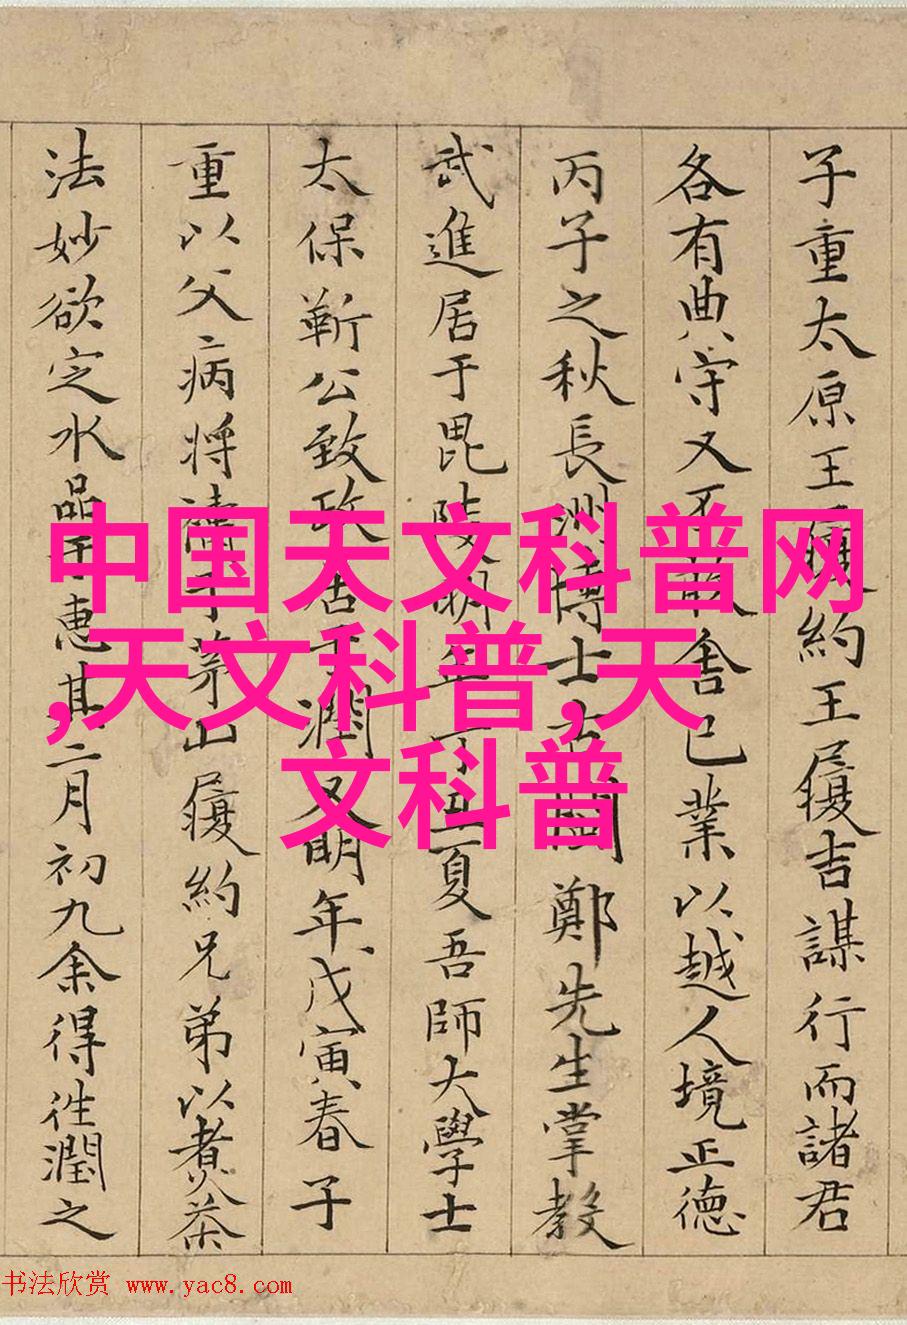 子重太原王履約王履吉謀行而諸君
各有典守又不敢舍己業以越人境正德
丙子之秋長洲博士古閩鄭先生掌教
武進居于毘陵明年丁丑夏吾師大學士
太保靳公致政居于潤又明年戊寅春子
重以父病將禱于茅山履約兄弟以煮茶
法妙欲定水品于惠其二月初九余得往潤之
中国天文科普网
,天文科普,天
文科普
书法欣赏 www.yac8.com